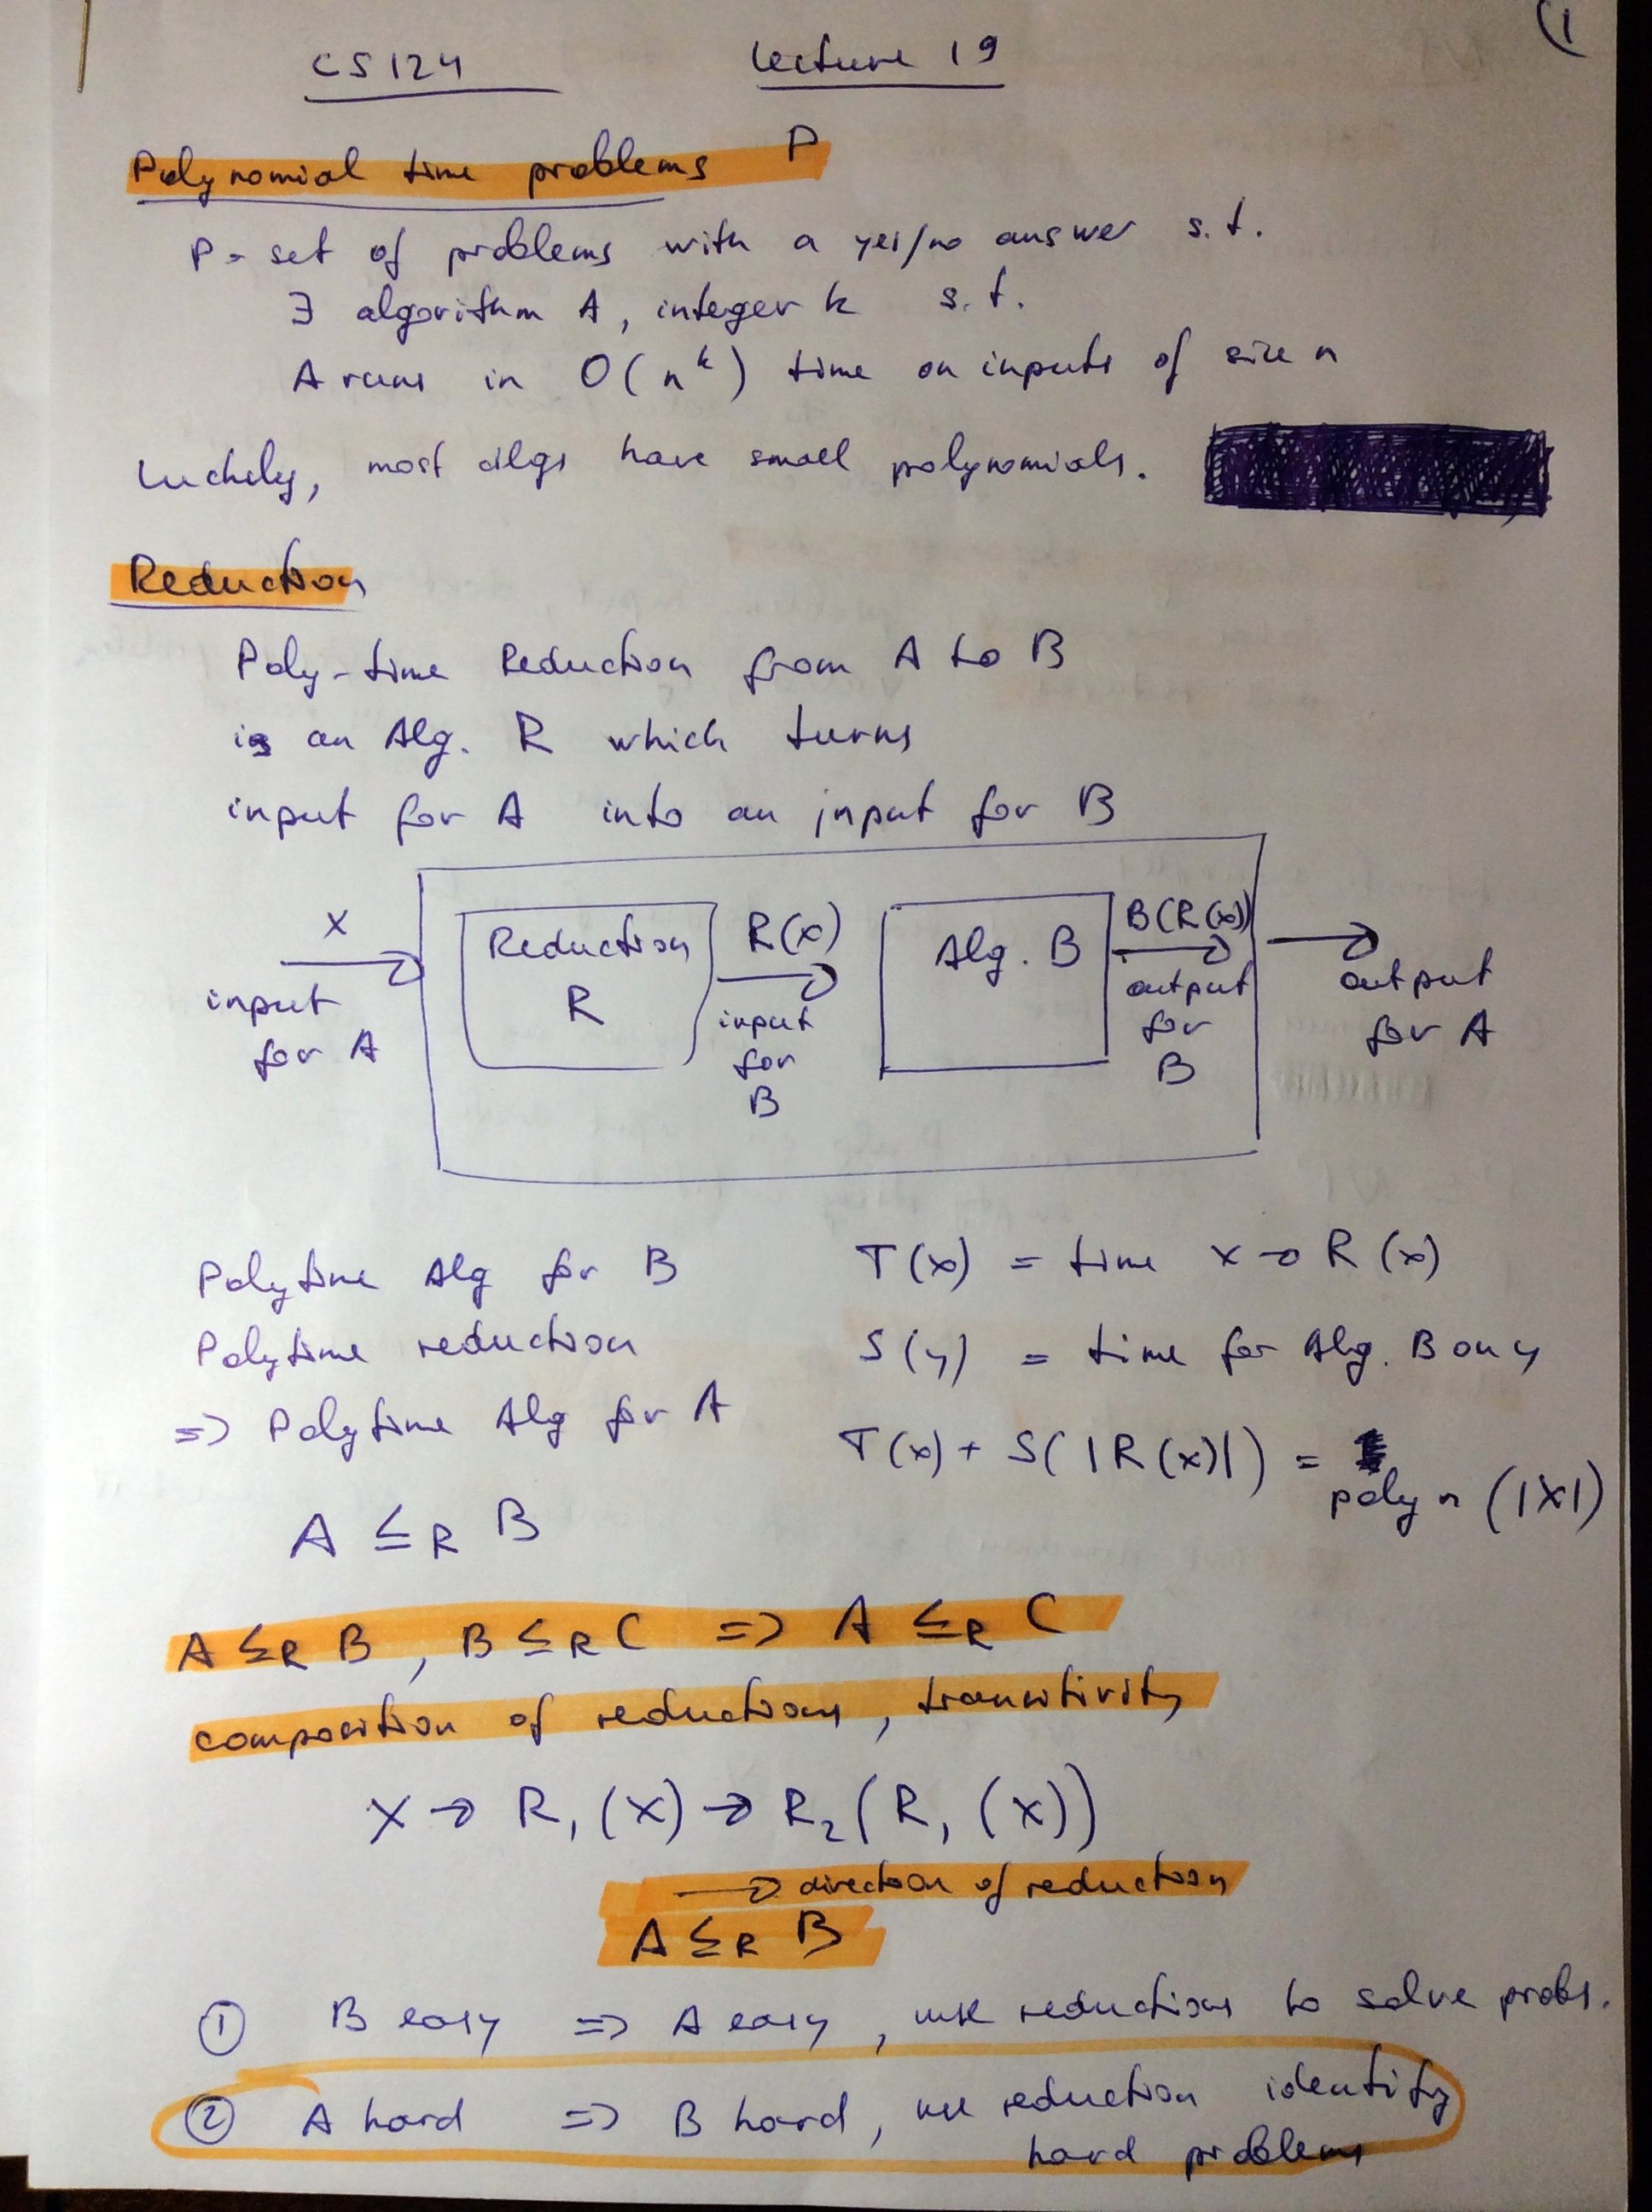 (1
CS 124 Lecture 19
Polynomial time problems P
P = set of problems with a yes/no answer s.t.
∃ algorithm A, integer k s.t.
A runs in O(n^k) time on inputs of size n
Luckily, most algs have small polynomials.
Reduction
Poly-time Reduction from A to B
is an Alg. R which turns
input for A into an input for B
x
input
for A
Reduction
R
R(x)
input
for
B
Alg. B
B(R(x))
output
for
B
output
for A
Polytime Alg for B
Polytime reduction
=> Polytime Alg for A
A ≤R B
T(x) = time x → R(x)
S(y) = time for Alg. B on y
T(x) + S(|R(x)|) =
polyn (|x|)
A ≤R B, B ≤R C => A ≤R C
composition of reductions, transitivity
x → R₁(x) → R₂(R₁(x))
→ direction of reduction
A ≤R B
① B easy => A easy, use reductions to solve probs.
② A hard => B hard, use reduction identify
hard problems